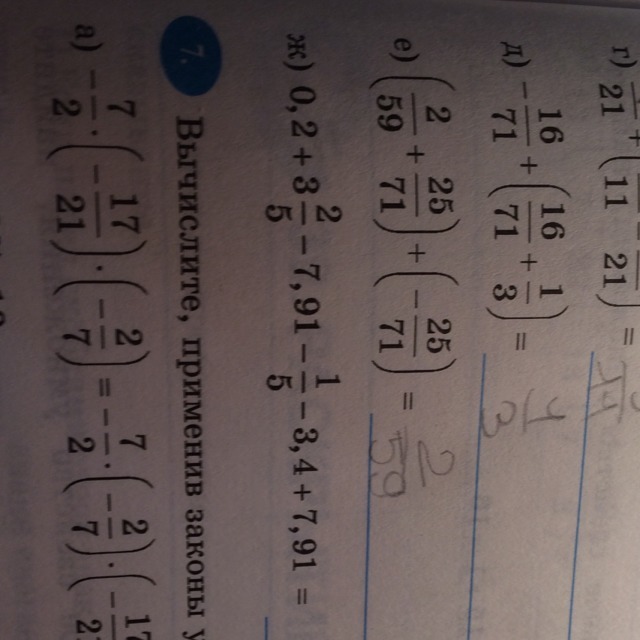 г) /21 + (/11 − /21) =
д) −16/71 + (16/71 + 1/3) = 1/3
е) (2/59 + 25/71) + (−25/71) = 2/59
ж) 0,2 + 3 2/5 − 7,91 − 1/5 − 3,4 + 7,91 =
7. Вычислите, применив законы
а) −7/2 · (−17/21) · (−2/7) = −7/2 · (−2/7) · (−